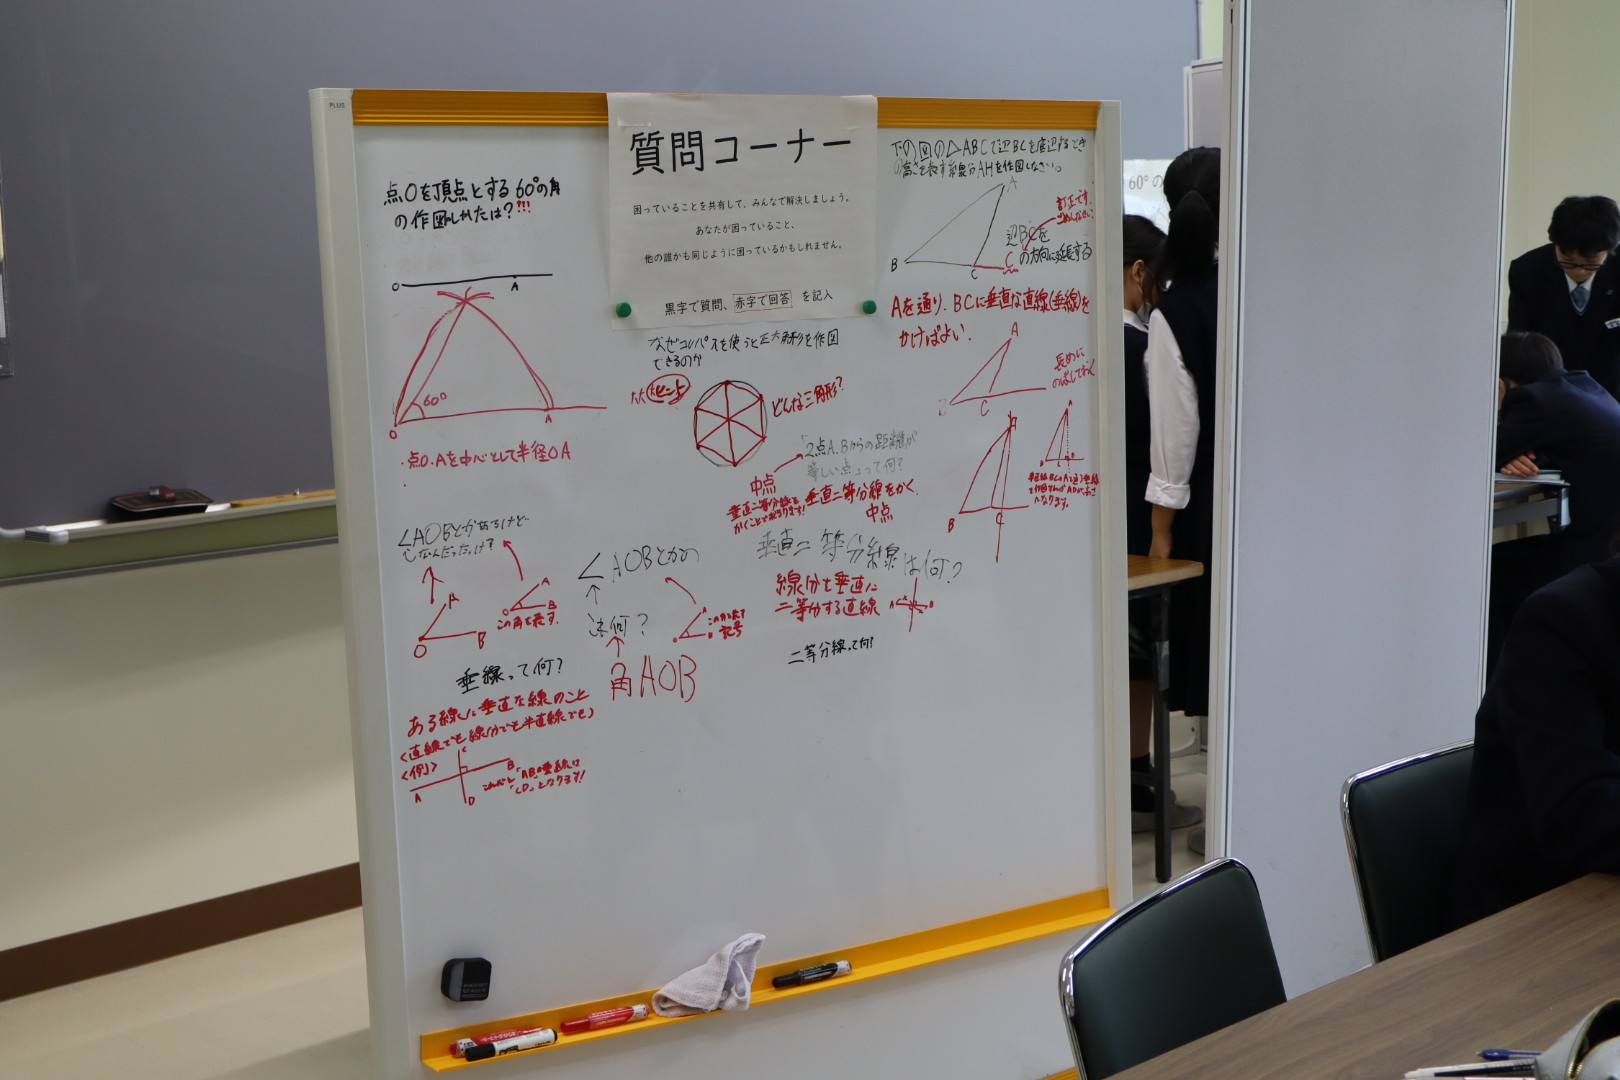 PLUS
質問コーナー
困っていることを共有して、みんなで解決しましょう。
あなたが困っていること、
他の誰かも同じように困っているかもしれません。
黒字で質問、赤字で回答 を記入
点Oを頂点とする60°の角
の作図しかたは?!!!
O A
60°
O A
・点O.Aを中心として半径OA
∠AOBとかあるけど
∠なんだったっけ?
A
O B
A
O B
この角を表す.
垂線って何?
ある線に垂直な線のこと
(直線でも線分でも半直線でも)
<例>
C
A B
D
なぜコンパスを使うと正六角形を作図
できるのか
ヒント
どんな三角形?
「2点A.Bからの距離が
等しい点」って何?
中点
垂直二等分線をかく.
中点
∠AOBとかの
∠は何?
記号
角AOB
垂直二等分線は何?
線分を垂直に
二等分する直線
A B
二等分線って何?
下の図の△ABCで辺BCを底辺するとき
の高さを表す線分AHを作図しなさい。
A
B C
訂正です。
ごめんなさい。
辺BCを
Cの方向に延長する
Aを通り、BCに垂直な直線(垂線)を
かけばよい.
A
B C
長めに
のばしておく
B C